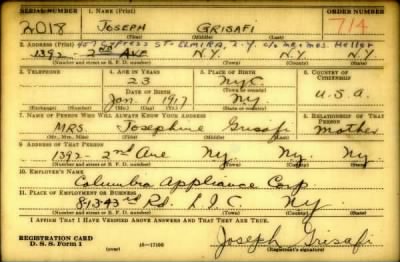 SERIAL NUMBER 1. NAME (Print) ORDER NUMBER
2018 JOSEPH GRISAFI 714
2. ADDRESS (Print) 457 ST- ELMIRA, N.Y. c/o Heller
1392- 2nd AVE N.Y. N.Y.
(Number and street or R. F. D. number) (Town) (County) (State)
3. TELEPHONE 4. AGE IN YEARS 5. PLACE OF BIRTH 6. COUNTRY OF
23 NyC CITIZENSHIP
DATE OF BIRTH (Town or county)
Jan. 1917 Ny U.S.A.
(Exchange) (Number) (Mo.) (Day) (Yr.) (State or country)
7. NAME OF PERSON WHO WILL ALWAYS KNOW YOUR ADDRESS 8. RELATIONSHIP OF THAT PERSON
MRS. Josephine Grisafi Mother
(Mr., Mrs., Miss) (First) (Middle) (Last)
9. ADDRESS OF THAT PERSON
1392- 2nd Ave Ny. Ny. Ny.
(Number and street or R. F. D. number) (Town) (County) (State)
10. EMPLOYER'S NAME
Columbia Appliance Corp
11. PLACE OF EMPLOYMENT OR BUSINESS
43rd Rd. L.I.C. Ny
(Number and street or R. F. D. number) (Town) (County) (State)
I AFFIRM THAT I HAVE VERIFIED ABOVE ANSWERS AND THAT THEY ARE TRUE.
REGISTRATION CARD
D. S. S. Form 1 (over) 16-17105 Joseph Grisafi
(Registrant's signature)